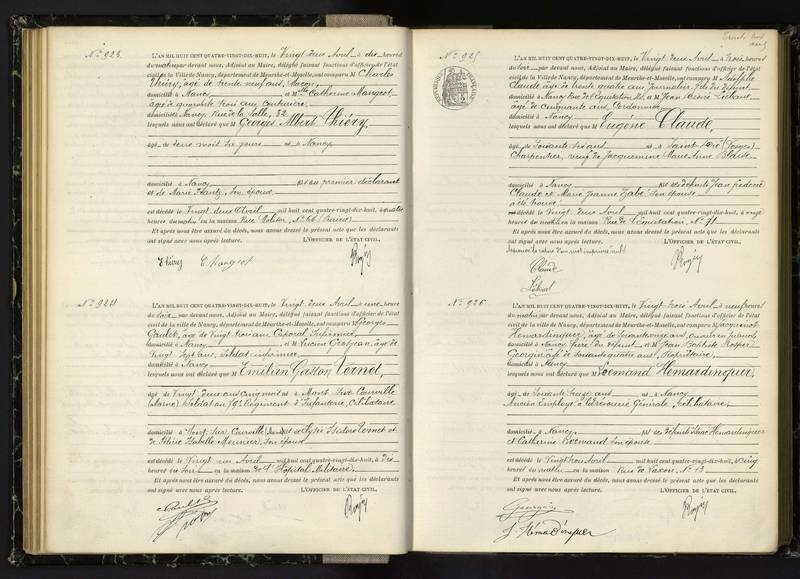 N° 923.
L'AN MIL HUIT CENT QUATRE-VINGT-DIX-HUIT, le Vingt deux Avril à dix heures
du matin par devant nous, Adjoint au Maire, délégué faisant fonctions d'officier de l'état
civil de la Ville de Nancy, département de Meurthe-et-Moselle, ont comparu M Charles
Thiéry, âgé de trente neuf ans,
domicilié à Nancy et Catherine Mangeot
âgée de quarante trois ans couturière
domiciliés Nancy Rue de la Salle, 32
lesquels nous ont déclaré que M Georges Albert Thiéry,
âgé de deux mois dix jours né à Nancy
domicilié à Nancy fils du premier déclarant
et de Marie Hantz, son épouse
est décédé le Vingt deux Avril mil huit cent quatre-vingt-dix-huit, à quatre
heures du matin en la maison Rue Molitor, N° 66
Et après nous être assuré du décès, nous avons dressé le présent acte que les déclarants
ont signé avec nous après lecture. L'OFFICIER DE L'ÉTAT CIVIL,
Thiéry C Mangeot
N° 924
L'AN MIL HUIT CENT QUATRE-VINGT-DIX-HUIT, le Vingt deux Avril à une heure
du soir, par devant nous, Adjoint au Maire, délégué faisant fonctions d'officier de l'état
civil de la ville de Nancy, département de Meurthe-et-Moselle, ont comparu M Georges
Caulet, âgé de Vingt trois ans, Caporal Infirmier
domicilié à Nancy et M Lucien Grosjean, âgé de
Vingt sept ans, Soldat infirmier
domicilié à Nancy
lesquels nous ont déclaré que M Emilien Gaston Ternet,
âgé de Vingt deux ans cinq mois né à Mont sur Courville
(Marne) Soldat au 79e Régiment d'Infanterie, Célibataire
domicilié à Mont sur Courville (Marne) fils de Elysée Isidore Ternet et
de Isabelle Meunier, son épouse
est décédé le Vingt un Avril mil huit cent quatre-vingt-dix-huit, à dix
heures du soir en la maison de l'Hôpital Militaire.
Et après nous être assuré du décès, nous avons dressé le présent acte que les déclarants
ont signé avec nous après lecture. L'OFFICIER DE L'ÉTAT CIVIL,
N° 925
L'AN MIL HUIT CENT QUATRE-VINGT-DIX-HUIT, le Vingt deux Avril à trois heures
du soir par devant nous, Adjoint au Maire, délégué faisant fonctions d'officier de l'état
civil de la Ville de Nancy, département de Meurthe-et-Moselle, ont comparu M Adolphe
Claude âgé de trente quatre ans Journalier, fils du défunt
domicilié à Nancy Rue de l'Equitation et M Jean
âgé de Cinquante ans, Cordonnier
domicilié à Nancy
lesquels nous ont déclaré que M Eugène Claude,
âgé de Soixante six ans né à Saint Dié (Vosges)
Charpentier, veuf de Jacquemine Marie Anne Blaise
domicilié à Nancy fils de défunts Jean
Claude et Marie Jeanne son épouse
a été trouvé
décédé le Vingt deux Avril mil huit cent quatre-vingt-dix-huit, à vingt
heures en la maison Rue de l'Equitation, N° 71
Et après nous être assuré du décès, nous avons dressé le présent acte que les déclarants
ont signé avec nous après lecture. L'OFFICIER DE L'ÉTAT CIVIL,
Claude
N° 926
L'AN MIL HUIT CENT QUATRE-VINGT-DIX-HUIT, le Vingt trois Avril à neuf heures
du matin par devant nous, Adjoint au Maire, délégué faisant fonctions d'officier de l'état
civil de la Ville de Nancy, département de Meurthe-et-Moselle, ont comparu M
Hemardinquer, âgé de Soixante ans,
domicilié à Nancy, frère du défunt et M Jean Baptiste
Georgin âgé de Soixante quatre ans,
domicilié à Nancy
lesquels nous ont déclaré que M Hemardinquer,
âgé de Soixante treize ans né à Nancy
Ancien Employé à Générale, Célibataire,
domicilié à Nancy, fils de défunts Isaac Hemardinquer
et Catherine son épouse
est décédé le Vingt trois Avril mil huit cent quatre-vingt-dix-huit, à Cinq
heures du matin en la maison Rue de Saxon, N° 13
Et après nous être assuré du décès, nous avons dressé le présent acte que les déclarants
ont signé avec nous après lecture. L'OFFICIER DE L'ÉTAT CIVIL,
Georgin
J. Hémardinquer